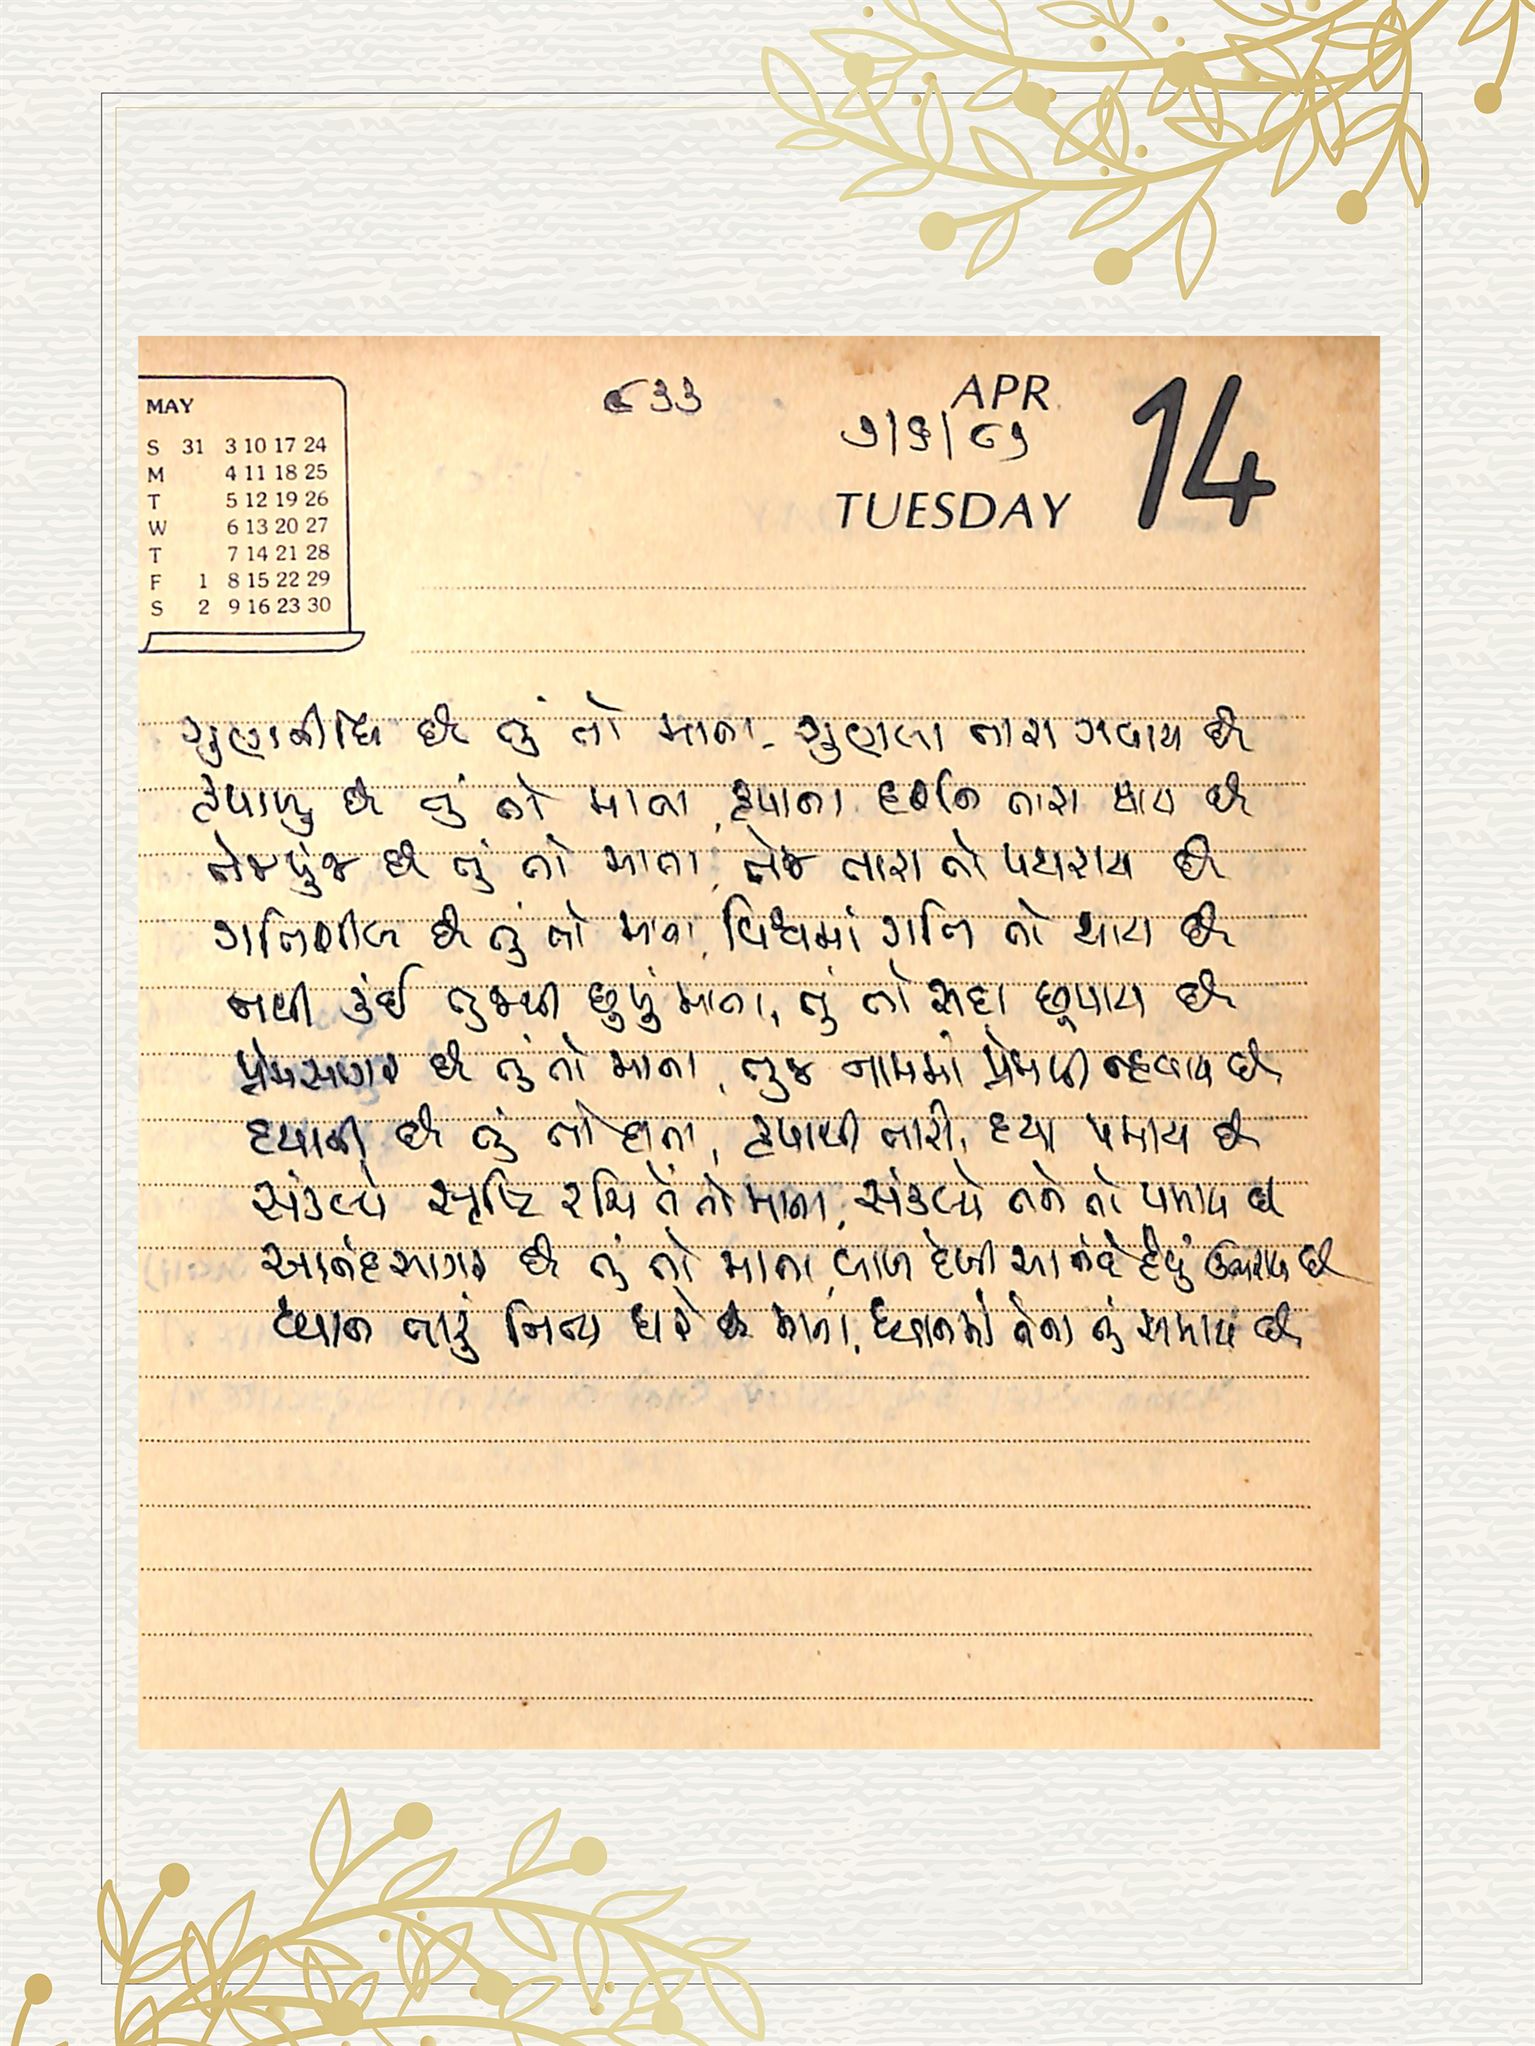 MAY
S 31 3 10 17 24
M 4 11 18 25
T 5 12 19 26
W 6 13 20 27
T 7 14 21 28
F 1 8 15 22 29
S 2 9 16 23 30
૮33
APR
14
TUESDAY
ગુણનીધિ છે તું તો માતા, ગુણલા તારા ગવાય છે
કૃપાળુ છે તું તો માતા, કૃપાના દર્શન તારા થાય છે
તેજપુંજ છે તું તો માતા, તેજ તારા તો પથરાય છે
ગતિશીલ છે તું તો માતા, વિશ્વમાં ગતિ તો થાય છે
નથી કંઈ તુજથી છુપું માતા, તું તો સદા છૂપાય છે
પ્રેમસાગર છે તું તો માતા, તુજ નામમાં પ્રેમથી ન્હવાય છે
દયાની છે તું તો દાતા, કૃપાથી તારી, દયા પમાય છે
સંકલ્પે સૃષ્ટિ રચિ તેં તો માતા, સંકલ્પે તને તો પમાય છે
આનંદસાગર છે તું તો માતા, બાળ દેખી આનંદે હૈયું ઉભરાય છે
ધ્યાન તારું નિત્ય ધરે જે માતા, ધ્યાનમાં તેના તું સમાય છે